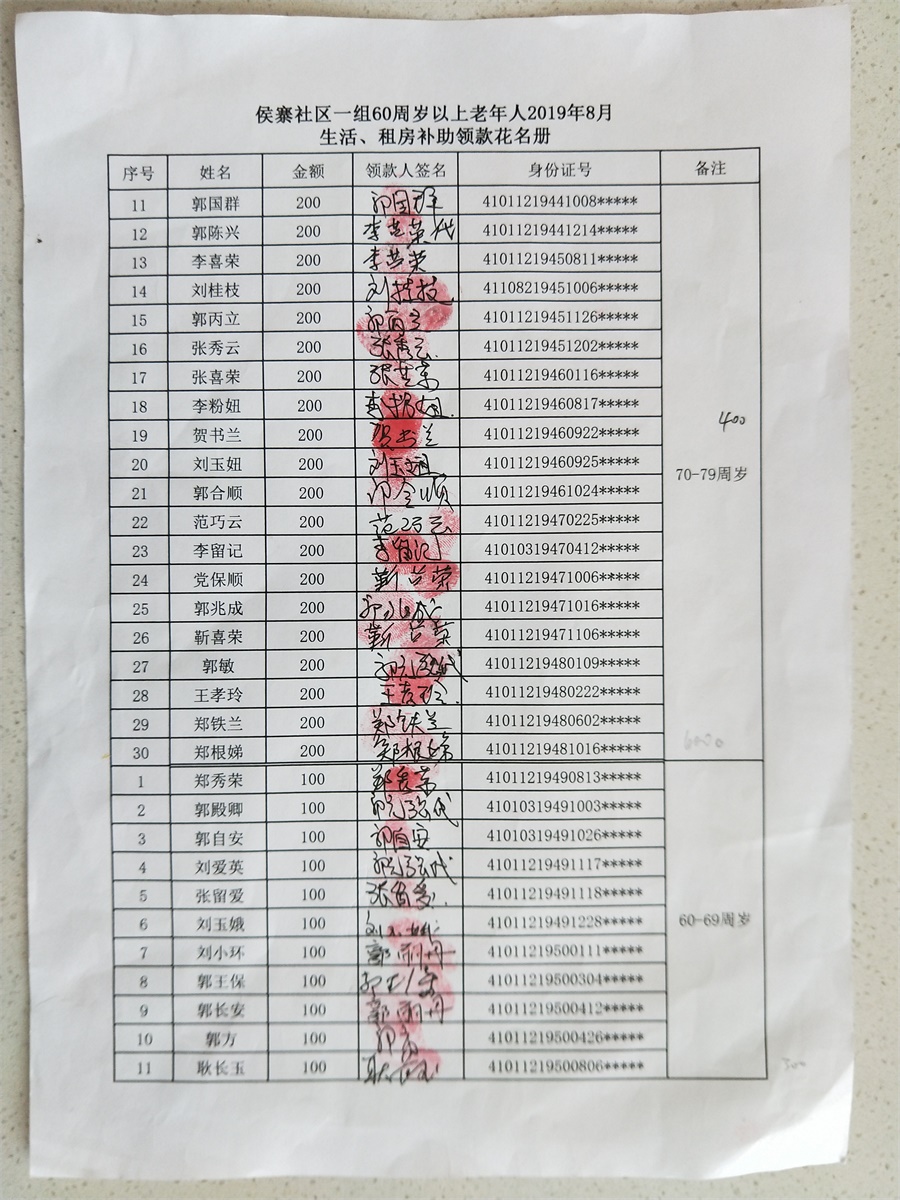 侯寨社区一组60周岁以上老年人2019年8月
生活、租房补助领款花名册
序号 姓名 金额 领款人签名 身份证号 备注
11 郭国群 200 郭国群 41011219441008*****
12 郭陈兴 200 李喜荣代 41011219441214*****
13 李喜荣 200 李喜荣 41011219450811*****
14 刘桂枝 200 刘桂枝 41108219451006*****
15 郭丙立 200 郭丙立 41011219451126*****
16 张秀云 200 张秀云 41011219451202*****
17 张喜荣 200 张喜荣 41011219460116*****
18 李粉妞 200 李粉妞 41011219460817*****
19 贺书兰 200 贺书兰 41011219460922*****
400
20 刘玉妞 200 刘玉妞 41011219460925*****
70-79周岁
21 郭合顺 200 郭合顺 41011219461024*****
22 范巧云 200 范巧云 41011219470225*****
23 李留记 200 李留记 41010319470412*****
24 党保顺 200 靳喜荣 41011219471006*****
25 郭兆成 200 郭兆成 41011219471016*****
26 靳喜荣 200 靳喜荣 41011219471106*****
27 郭敏 200 41011219480109*****
28 王孝玲 200 王孝玲 41011219480222*****
29 郑铁兰 200 郑铁兰 41011219480602*****
30 郑根娣 200 郑根娣 41011219481016*****
1 郑秀荣 100 郑秀荣 41011219490813*****
2 郭殿卿 100 41010319491003*****
3 郭自安 100 郭自安 41010319491026*****
4 刘爱英 100 41011219491117*****
5 张留爱 100 张留爱 41011219491118*****
6 刘玉娥 100 刘玉娥 41011219491228*****
60-69周岁
7 刘小环 100 郭丽丹 41011219500111*****
8 郭王保 100 郭王保 41011219500304*****
9 郭长安 100 郭丽丹 41011219500412*****
10 郭方 100 郭方 41011219500426*****
11 耿长玉 100 耿长玉 41011219500806*****
300